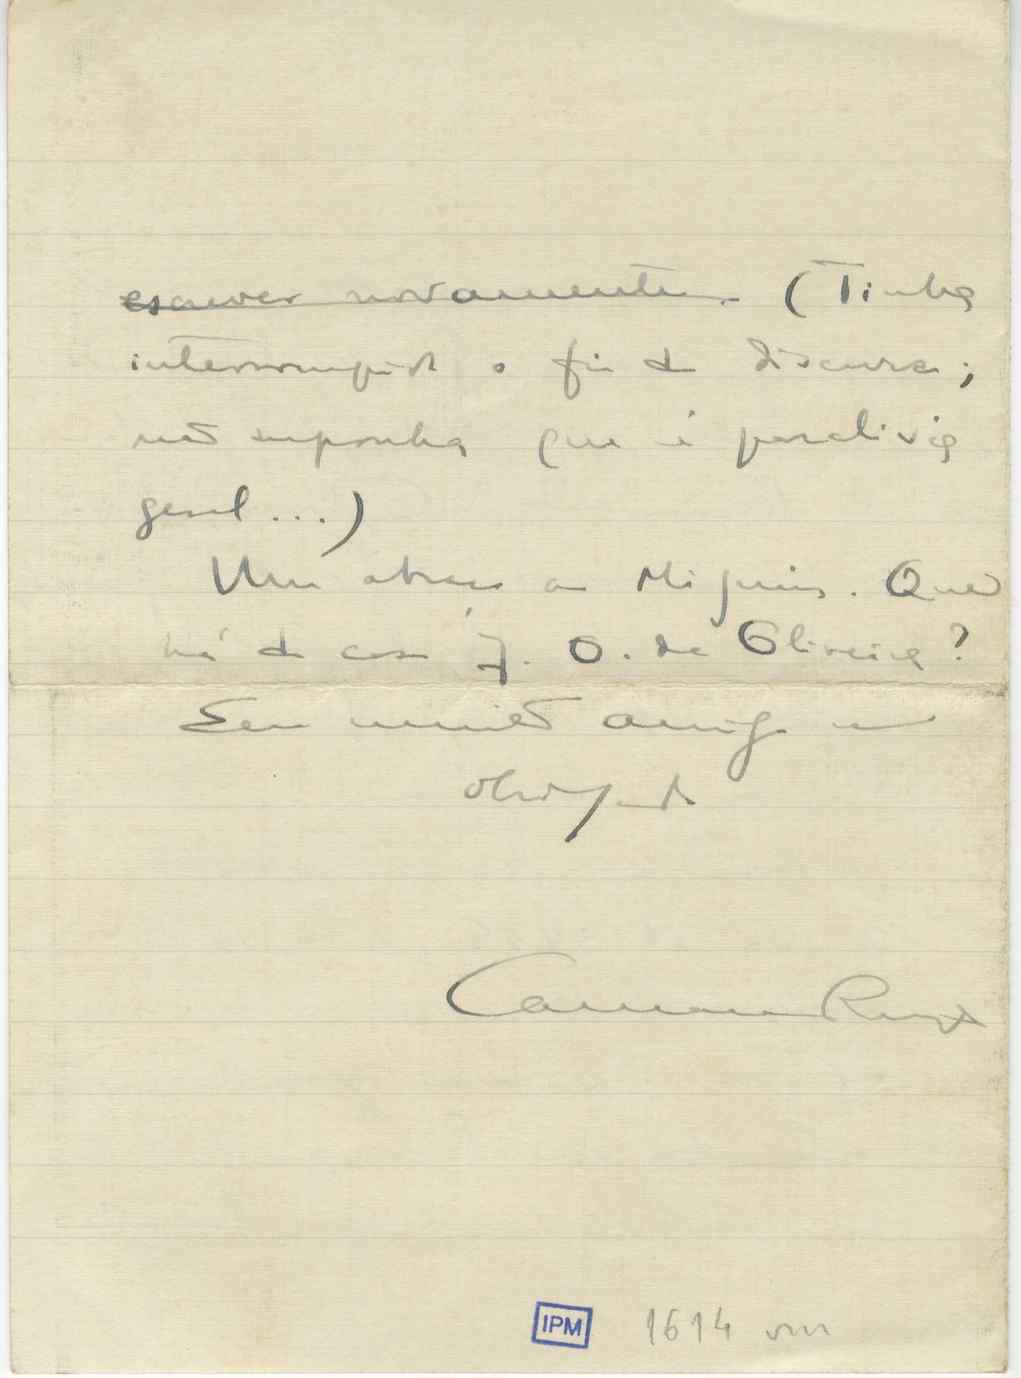 escrever novamente. (Tinha
interrompido o fio do discurso;
não suponha que é paralisia
geral...)
Um abraço ao Miguéis. Que
há do caso J. O. de Oliveira?
Seu muito amigo e
obrigado
Camara Reys
IPM 1614